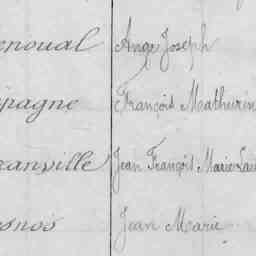 enoual Ange Joseph
pagne François Mathurin
ranville Jean François Marie Lau
snois Jean Marie